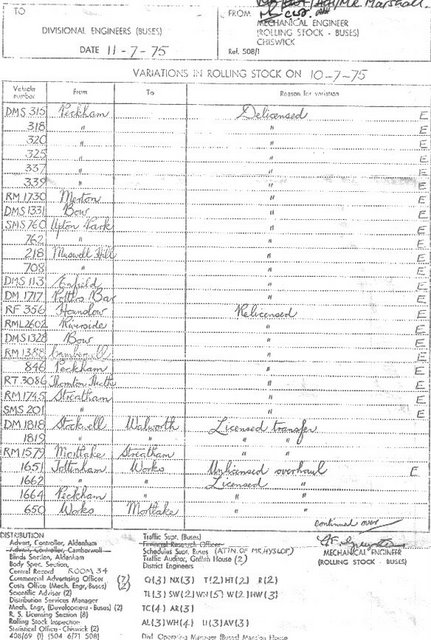 TO
FROM
Mr Marshall.
DIVISIONAL ENGINEERS (BUSES)
MECHANICAL ENGINEER
(ROLLING STOCK - BUSES)
CHISWICK
DATE 11-7-75
Ref. 508/1
VARIATIONS IN ROLLING STOCK ON 10-7-75
Vehicle number From To Reason for variation
DMS 315 Peckham Delicensed E
318 " " E
320 " " E
325 " " E
337 " " E
339 " " E
RM 1730 Merton " E
DMS 1331 Bow " E
SMS 760 Upton Park " E
762 " " E
218 Muswell Hill " E
708 " " E
DMS 113 Enfield " E
DM 1717 Potters Bar " E
RF 356 Hounslow Relicensed E
RML 2602 Riverside " E
DMS 1328 Bow " E
RM 1388 Camberwell " E
846 Peckham " E
RT 3086 Thornton Heath " E
RM 1745 Streatham " E
SMS 201 " " E
DM 1818 Stockwell Walworth Licensed transfer
1819 " " " "
RM 1579 Mortlake Streatham " "
1651 Tottenham Works Unlicensed overhaul E
1662 " " Licensed "
1664 Peckham " " "
650 Works Mortlake " "
continued over
DISTRIBUTION
MECHANICAL ENGINEER
(ROLLING STOCK - BUSES)
Advert. Controller, Aldenham
Advert. Controller, Camberwell
Blinds Section, Aldenham
Body Spec. Section,
Central Record ROOM 34
Commercial Advertising Officer (2)
Costs Office (Mech. Engr, Buses) (2)
Scientific Adviser (2)
Distribution Services Manager
Mech. Engr. (Development - Buses) (2)
R. S. Licensing Section (8)
Rolling Stock Inspection
Statistical Office - Chiswick (2)
408/69 (1) (504 6/71 508)
Traffic Supt. (Buses)
Financial Research Officer
Schedules Supt. Buses (ATTN OF MR HYSLOP)
Traffic Auditor, Griffith House (2)
District Engineers
Q(3) NX(3) T(2) HT(2) R(2)
TL(3) SW(2) WN(5) W(2) HW(3)
TC(4) AR(3)
AL(3) WH(4) U(3) AV(3)